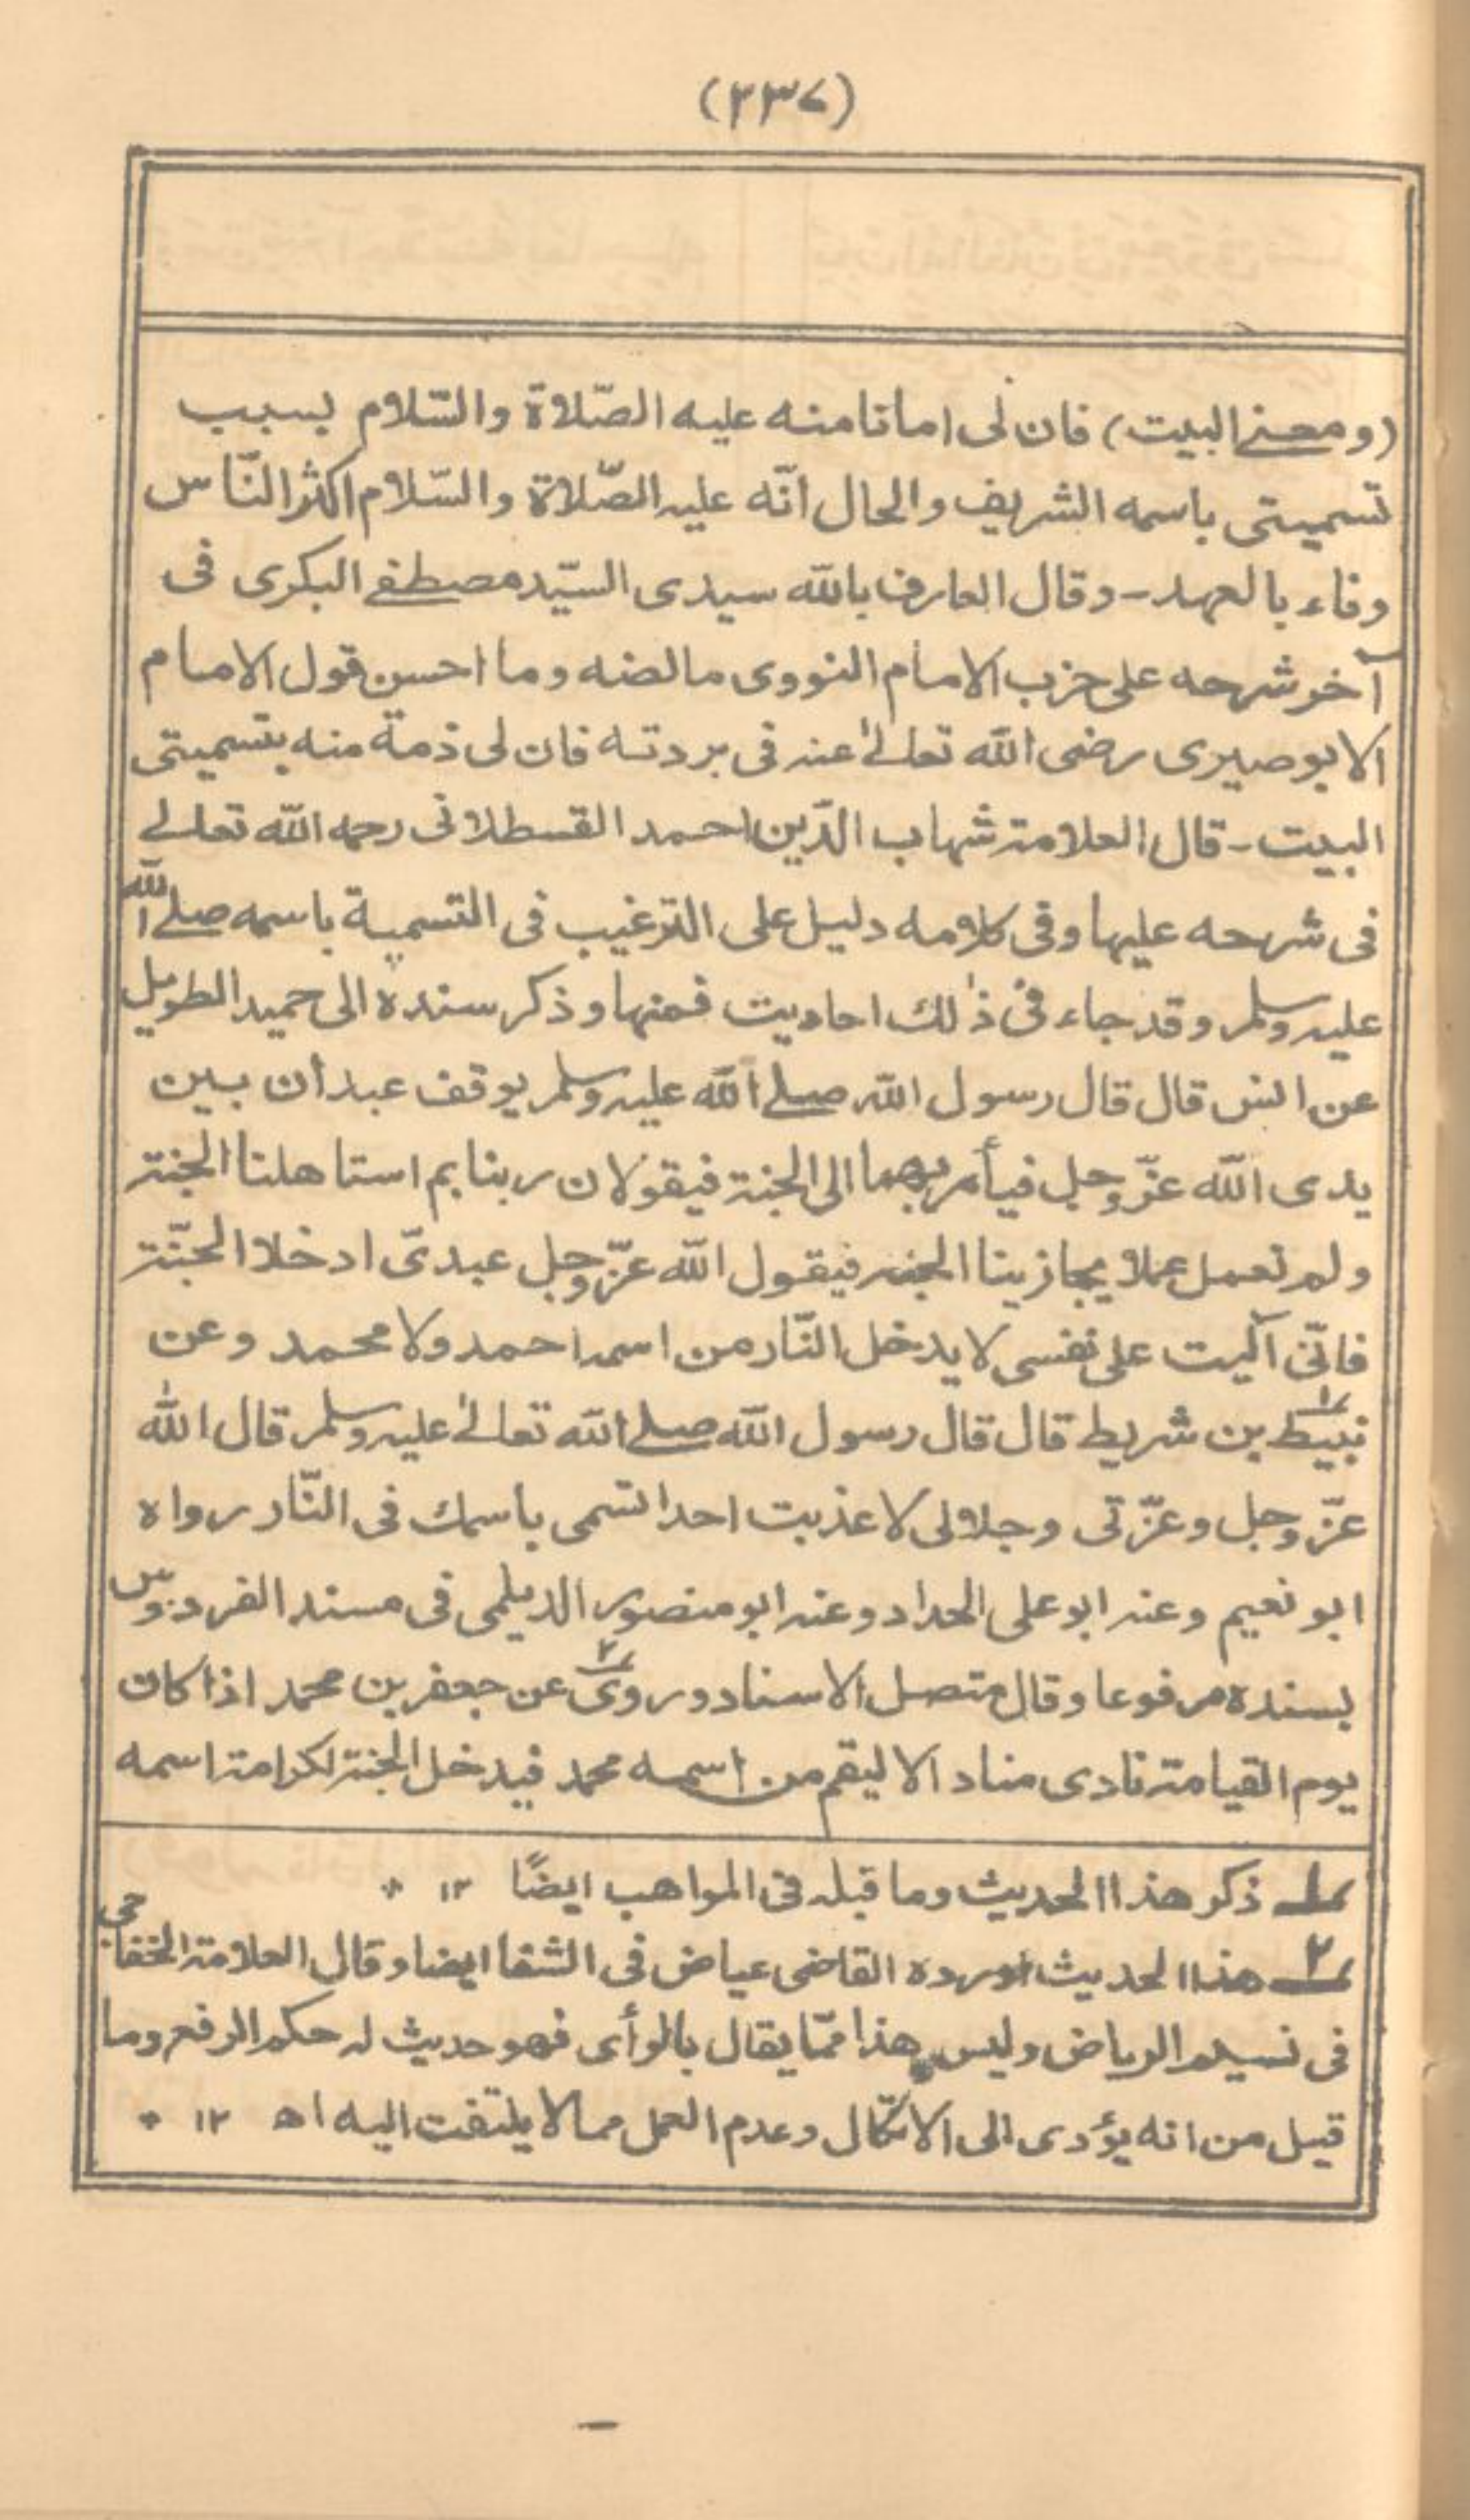 (٢٣٧)
(ومعنے البيت) فان لى امانا منه عليه الصّلاة والسّلام بسبب
تسميتى باسمه الشريف والحال انّه عليه الصّلاة والسّلام اكثر النّاس
وفاء بالعهد - وقال العارف بالله سيدى السيّد مصطفے البكرى فى
آخر شرحه على حزب الامام النووى مالضه وما احسن قول الامام
الابوصيرى رضى الله تعالےٰ عنه فى بردته فان لى ذمة منه بتسميتى
البيت - قال العلامة شهاب الدّين احمد القسطلانى رحمه الله تعالے
فى شرحه عليها وفى كلامه دليل على الترغيب فى التسمية باسمه صلے الله
عليه وسلم وقد جاء فى ذٰلك احاديث فمنها وذكر سنده الى حميد الطويل
عن انس قال قال رسول الله صلے الله عليه وسلم يوقف عبدان بين
يدى الله عزّ وجل فيأمر بهما الى الجنة فيقولان ربنا بم استاهلنا الجنة
ولم نعمل عملا يجازينا الجنه فيقول الله عزّ وجل عبدىّ ادخلا الجنّة
فانّى آليت على نفسى لا يدخل النّار من اسمه احمد ولا محمد وعن
نبيط١ بن شريط قال قال رسول الله صلے الله تعالےٰ عليه وسلم قال الله
عزّ وجل وعزّتى وجلالى لا عذبت احدا تسمى باسمك فى النّار رواه
ابو نعيم وعنه ابو على الحداد وعنه ابو منصور الديلمى فى مسند الفردوس
بسنده مرفوعا وقال متصل الاسناد وروى٢ عن جعفر بن محمد اذا كان
يوم القيامة نادى مناد الا ليقم من اسمه محمد فيدخل الجنة لكرامة اسمه
١ ذكر هذا الحديث وما قبله فى المواهب ايضًا ١٢ *
٢ هذا الحديث اورده القاضى عياض فى الشفا ايضا وقال العلامة الخفاجى
فى نسيم الرياض وليس هذا ممّا يقال بالرأى فهو حديث له حكم الرفع وما
قيل من انه يؤدى الى الاتكّال وعدم العمل مما لا يلتفت اليه اھ ١٢ *